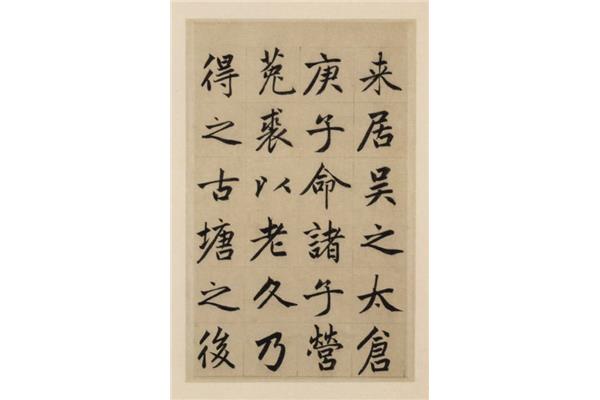 来居吴之太倉
庚子命諸子營
菟裘以老久乃
得之古塘之後